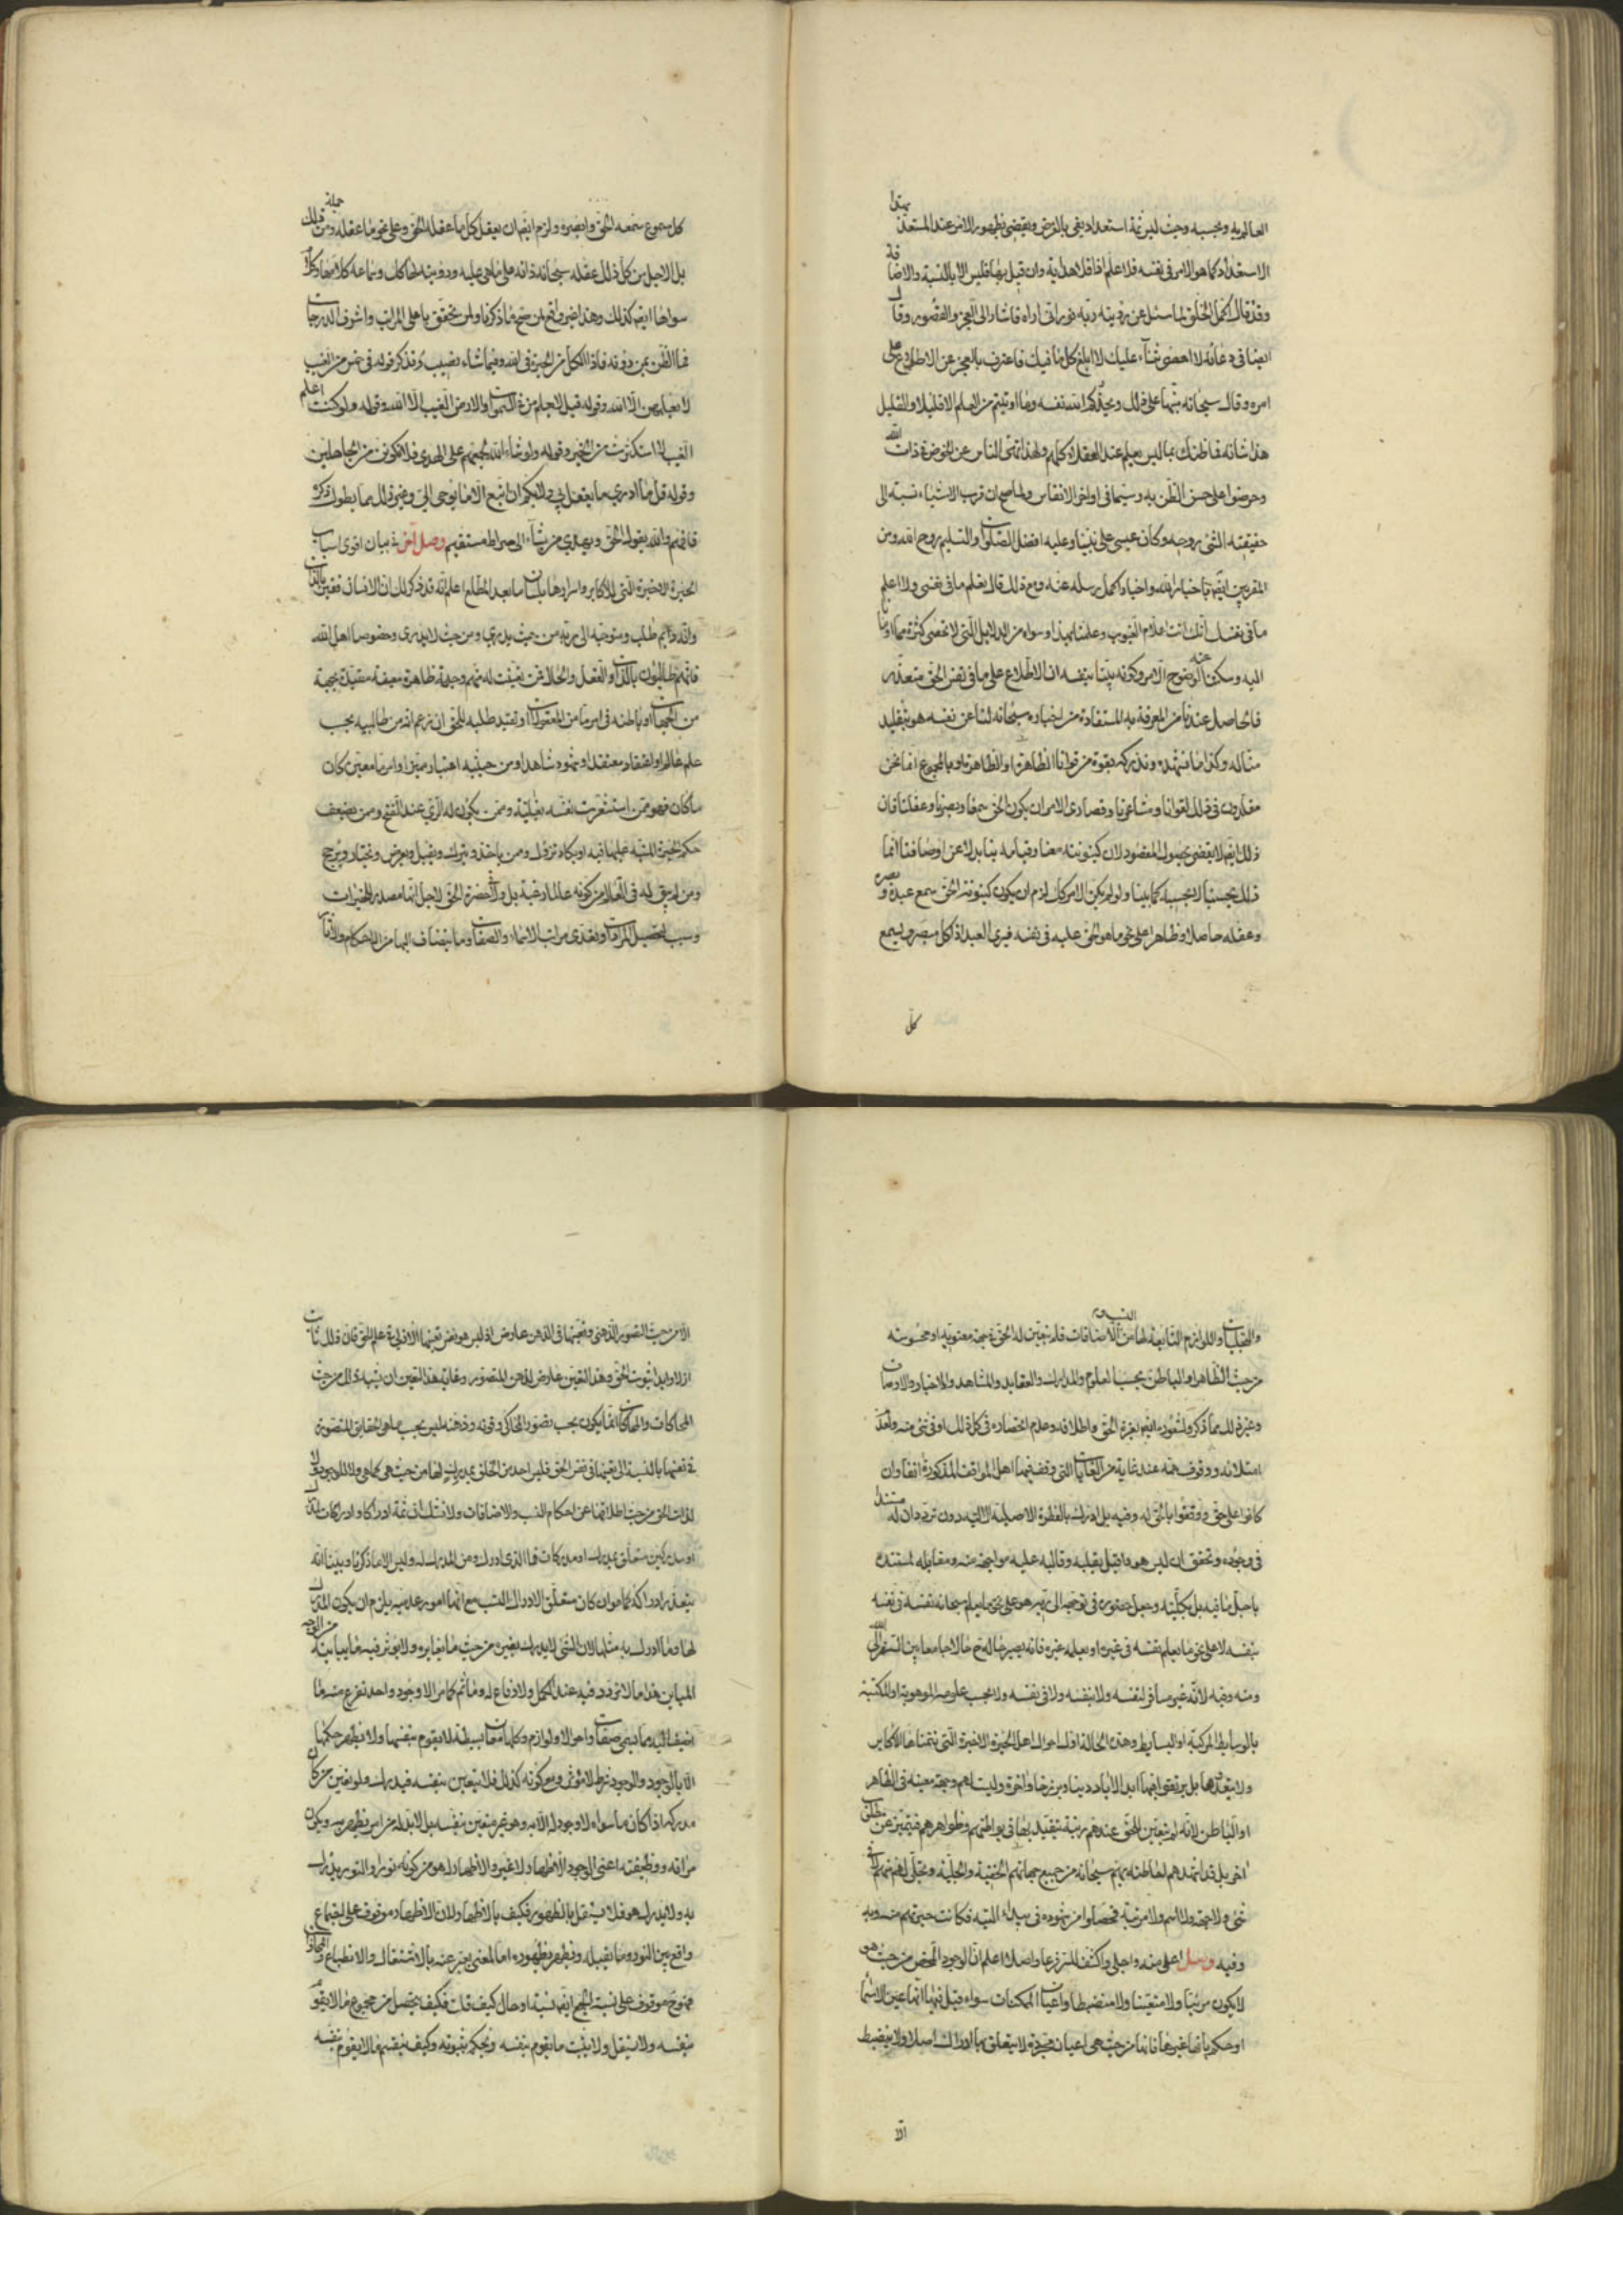 العالم به وبحسبه وحيث ليس ثمة استعداد يفي بالغرض ويقضي بظهور الامر عند المستعد بهذا
الاستعداد كما هو الامر في نفسه فلا علم اذا فلا هداية وان قيل بها فليس الا بالنسبة والاضافة
وقد قال اكمل الخلق لما سئل عن رؤيته ربه نورانى اراه فاشار الى العجز والقصور وقال
ايضا في دعائه لا احصي ثناء عليك لا ابلغ كل ما فيك فاعترف بالعجز عن الاطلاع على
امره وقال سبحانه منبها على ذلك ويحذركم الله نفسه وما اوتيتم من العلم الا قليلا والقليل
هذا شانه فما ظنك بما ليس بعلم عند العقلاء كلهم ولهذا نهى الناس عن الخوض في ذات الله
وحرضوا على حسن الظن به وسيما في اواخر الانفاس ولما صح ان قرب الاشياء نسبة الى
حقيقته الشئ روحه وكان عيسى على نبينا وعليه افضل الصلوات والتسليم روح الله ومن
المقربين ايضا باخبار الله واخبار اكمل رسله عنه ومع ذلك قال تعلم ما في نفسي ولا اعلم
ما في نفسك انك انت علام الغيوب وعلمنا بهذا وسواه من الدلايل التي لا تحصى كثرة مما اومأنا
اليه وسكتنا عنه لوضوح الامر وكونه بينا بنفسه ان الاطلاع على ما في نفس الحق متعذر
فالحاصل عندنا من المعرفة به المستفادة من اخباره سبحانه لنا عن نفسه هو بتقليد
منا له وكذا ما نشهده وندركه بقوة من قوانا الظاهرة او الباطنة او بالمجموع انما نحن
مقلدون في ذلك لقوانا ومشاعرنا وقصارى الامر ان يكون الحق سمعنا وبصرنا وعقلنا فان
ذلك ايضا لا يقضي بحصول المقصود لان كينونته معنا وقيامه بنا بدلا عن اوصافنا انما
ذلك بحسبنا لا بحسبه كما بينا ولو لم يكن الامر كذلك لزم ان يكون كينونته الحق سمع عبده وبصره
وعقله حاصلا وظاهرا على نحو ما هو الحق عليه في نفسه فيرى العبد اذا كل مبصر ويسمع
كل
كل مسموع سمعه الحق وابصره ولزم ايضا ان يعقل كل ما عقله الحق وعلى نحو ما عقله ومن جملة ذلك
بل الاجل من كل ذلك عقله سبحانه ذاته على ما هي عليه ورؤيته لها كذلك وسماعه كلامها وكلام
سواها ايضا كذلك وهذا غير واقع لمن صح له ما ذكرنا ولمن تحقق باعلى المراتب واشرف الدرجات
فما الظن بمن دونه فاذا لكل من الحيرة في الله وفيما شاء نصيب وتذكر قوله في خمس من الغيب
لا يعلمهن الا الله وقوله قل لا يعلم من في السموات والارض الغيب الا الله وقوله ولو كنت اعلم
الغيب لاستكثرت من الخير وقوله ولو شاء الله لجمعهم على الهدى فلا تكونن من الجاهلين
وقوله قل ما ادري ما يفعل بي ولا بكم ان اتبع الا ما يوحى الي وغير ذلك مما يطول ذكره
فافهم والله يقول الحق ويهدي من يشاء الى صراط مستقيم وصل آخر في بيان اقوى اسباب
الحيرة الاخيرة التي للاكابر واسرارها بلسان ما بعد المطلع اعلم انه قد ذكرنا ان الانسان فقير بالذات
وانه دايم طلب ومتوجه الى ربه من حيث يدري ومن حيث لا يدري وخصوصا اهل الله
فانهم طالبون بالذات والفعل والحال فمن تعينت له منهم وجهة ظاهرة معينة مقيدة بجهة
من الجهات او باطنه في امر ما من المعقولات وتقيد طلبه للحق ان زعم انه من طالبيه بحسب
علم عالم او اعتقاد معتقد او شهود شاهد او من حيثيه اعتبار مميز او امر ما معين كان
ما كان فهو ممن استشعرت نفسه بغايته وممن يكون له الرى عند الفتح ومن يضعف
حكم الحيرة المنبه عليها فيه او يكاد تزول ومن ياخذ ويترك ويقبل ويعرض ويختار ويرجح
ومن لم يبق له في العالم من كونه عالما رغبة بل ولا في حضرة الحق لاجل انها مصدر الخيرات
وسبب لتحصيل المرادات وتعدى مراتب الاسماء والصفات وما ينضاف اليها من الاحكام والاثار
والتجليات واللوازم التابعة لها من النسب والاضافات فلم يتعين له الحق في جهة معنوية او محسوسة
من حيث الظاهر او الباطن بحسب العلوم والمدارك والعقايد والمشاهد والاخبار والاوصاف
وغير ذلك مما ذكر ولشعوره ايضا بعزة الحق واطلاقه وعدم انحصاره في كل ذلك او في شئ منه ولعدم
امتلائه ووقوف همه عند غاية من الغايات التي وقف فيها اهل المواقف المذكورة آنفا وان
كانوا على حق ووقفوا بالحق له وفيه بل ادرك بالفطرة الاصلية الالهية دون تردد ان له مستندا
في وجوده وتحقق ان ليس هو واقبل بقلبه وقالبه عليه مواجهة منه ومقابلة لمستنده
باجل ما فيه بل بكليته وجعل حضوره في توجهه الى ربه هو على نحو ما يعلم سبحانه نفسه في نفسه
بنفسه لا على نحو ما يعلم نفسه في غيره او يعلمه غيره فانه يصير حاله حينئذ حالا جامعا بين السفر الى الله
ومنه وفيه لانه غير مسافر لنفسه ولا بنفسه ولا في نفسه ولا بحسب علومه الموهوبة او المكتسبة
بالوسايط المركبة او البسايط وهذه الحالة اول احوال اهل الحيرة الاخيرة التي يتمناها الاكابر
ولا يتعدونها بل يرتقون فيها ابد الاباد دنيا وبرزخا وآخرة وليست لهم وجهة معينة في الظاهر
او الباطن لانه لم يتعين للحق عندهم رتبة يتقيد بها في بواطنهم وظواهرهم فيتميز عن مطلوب
اخر بل قد اشهدهم احاطته بهم سبحانه من جميع جهاتهم الخفية والجلية وتجلى لهم منهم لا في
شئ ولا جهة ولا اسم ولا مرتبة فحصلوا من شهوده في بيداء التيه فكانت حيرتهم منه وبه
وفيه وصل اعلى منه واجلى واكشف للسر فرعا واصلا اعلم ان الوجود المحض من حيث هو
لا يكون مرئيا ولا متعينا ولا منضبطا واعيان الممكنات سواء قيل فيها انها عين الاسماء
او حكم بانها غيرها فانها من حيث هي اعيان مجردة لا يتعلق بها ادراك اصلا ولا ينضبط
الا
الا من حيث التصور الذهني وتعينها في الذهن عارض اذ ليس هو نفس تعينها الازلي في علم الحق فان ذلك ثابت
ازلا وابدا بثبوت الحق وهذا التعين عارض لذهن المتصور وغاية هذا التعين ان يشبه ذلك من حيث
المحاكات والمحاكات انما يكون بحسب تصور المحاكي وقوته وذهنه ليس بحسب ما هي الحقايق المتصورة
في نفسها بالنسبة الى تعينها في نفس الحق فليس احد من الخلق بمدرك لها من حيث هي كما هي ولا للوجود ولا
لذات الحق من حيث اطلاقها عن احكام النسب والاضافات ولا نشك ان ثمة ادراكا او ادراكات
او مدركين متعلق بمدرك او مدركات فما الذي ادرك ومن المدرك له وليس الا ما ذكرنا وبينا انه
يتعذر ادراكه كما هو وان كان متعلق الادراك النسب مع انها امور عدمية يلزم ان يكون المدرك
لها وما ادرك به مثلها لان الشئ لا يدرك بغيره من حيث ما يغايره ولا يؤثر فيه ما يباينه من الوجه
المباين هذا ما لا تردد فيه عند الكمل ولا دافع له وما ثم كما مر الا وجود واحد تفرع منه ما
اضيف اليه وما يسمى صفات واحوالا ولوازم وكلها معان بسيطة لا يقوم بنفسها ولا يظهر حكمها
الا بالوجود والوجود شرط لا مؤثر ومع كونه كذلك فلا يتعين بنفسه فيدرك ولو تعين من كان
مدركه اذا كان ما سواه لا وجود له الا به وهو غير متعين بنفسه بل لابد له من امر يظهر به ويكون
مرآته ووظيفته اعني الوجود الاظهار لا غير والاظهار له هو من كونه نورا والنور يدرك
به ولا يدرك هو فلا يستقل بالظهور فكيف بالاظهار لان الاظهار موقوف على اجتماع
واقع بين النور وما يقبله ويظهر بظهوره اما المعنى يعبر عنه بالاشتعال والانطباع والمحاذاة
فهو ح موقوف على نسبة الجمع ايضا نسبة او حال كيف قلت فكيف يتحصل من مجموع ما لا يقوم
بنفسه ولا يستقل ولا يثبت ما يقوم بنفسه ويحكم بثبوته وكيف ينقسم ما لا يقوم بنفسه